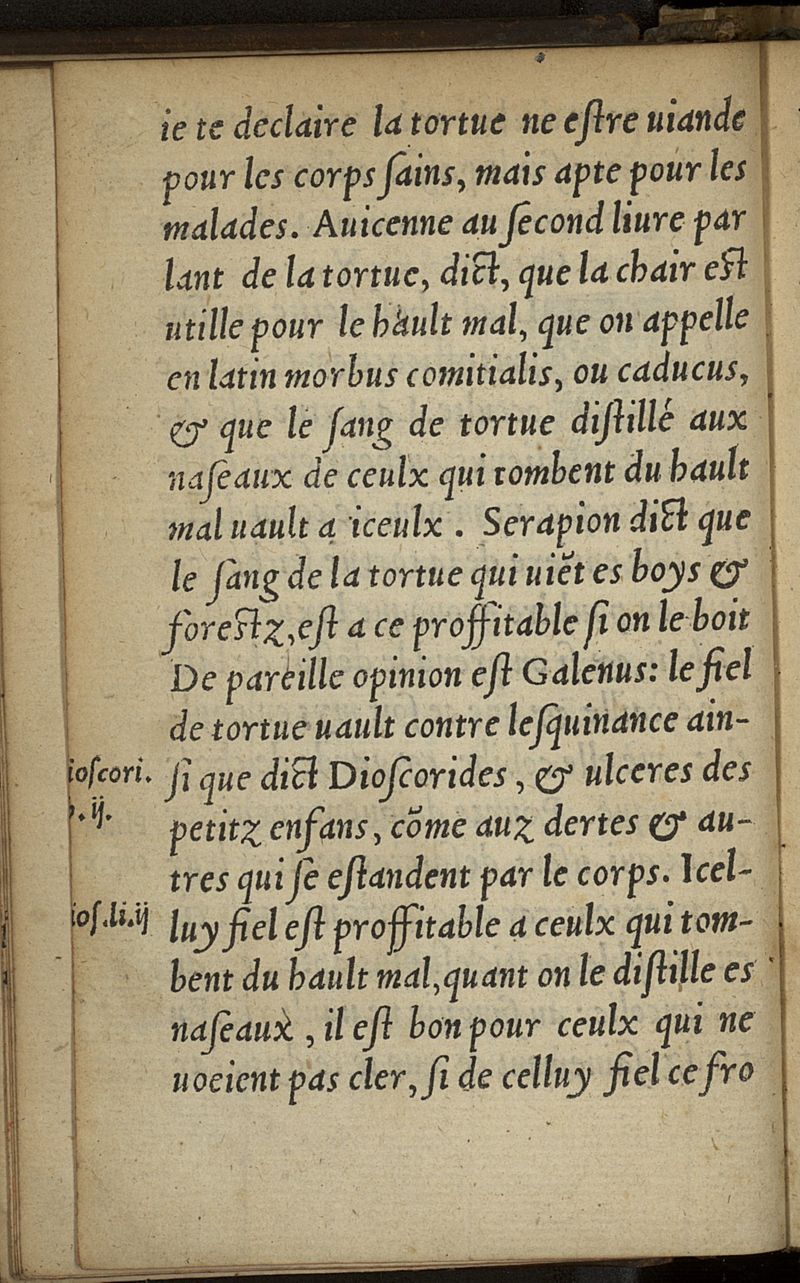 ie te declaire la tortue ne eſtre uiande
pour les corps ſains, mais apte pour les
malades. Auicenne au ſecond liure par
lant de la tortue, dict, que la chair eſt
utille pour le hault mal, que on appelle
en latin morbus comitialis, ou caducus,
& que le ſang de tortue diſtillé aux
naſeaux de ceulx qui tombent du hault
mal uault a iceulx . Serapion dict que
le ſang de la tortue qui uiēt es boys &
foreſtz, eſt a ce proffitable ſi on le boit
De pareille opinion eſt Galenus: le fiel
de tortue uault contre leſquinance ain-
ſi que dict Dioſcorides, & ulceres des
petitz enfans, cōme auz dertes & au-
tres qui ſe eſtandent par le corps. Icel-
luy fiel eſt proffitable a ceulx qui tom-
bent du hault mal, quant on le diſtille es
naſeaux, il eſt bon pour ceulx qui ne
uoeient pas cler, ſi de celluy fiel ce fro
ioſcori.
.ij.
ioſ.li.ij